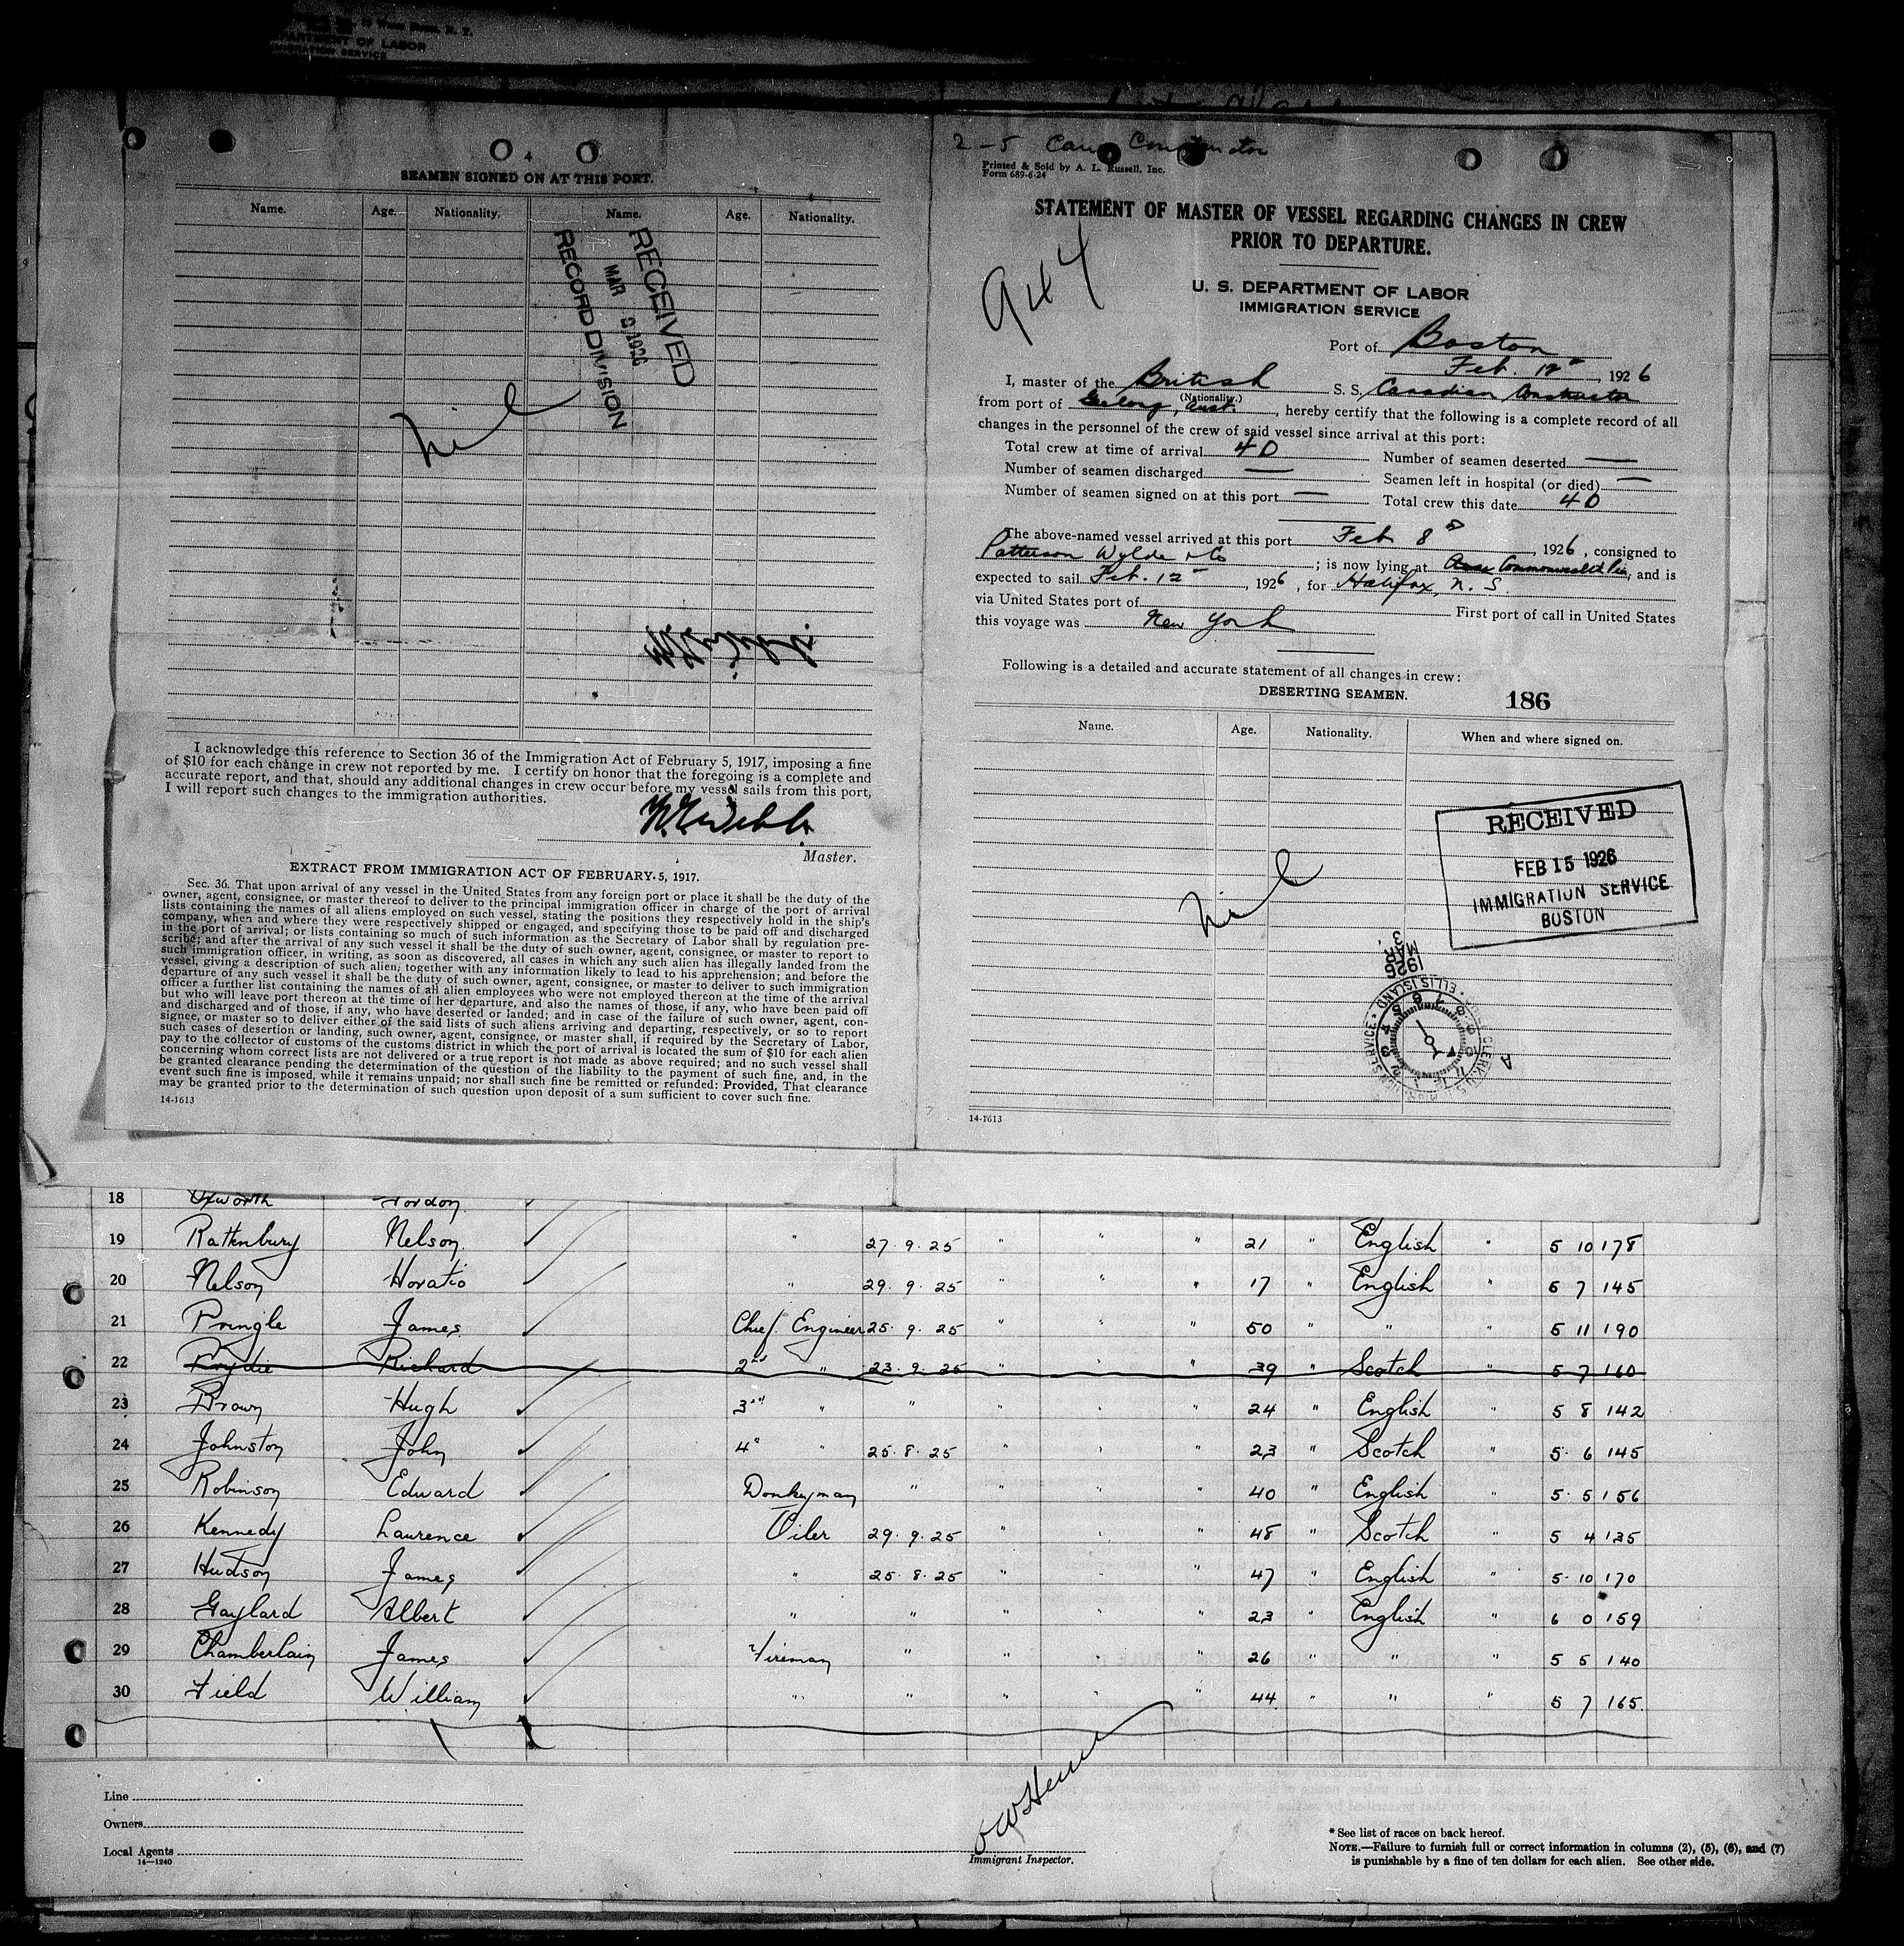 DEPARTMENT OF LABOR
4
SEAMEN SIGNED ON AT THIS PORT.
Name. Age. Nationality. Name. Age. Nationality.
RECEIVED
MAR 1926
RECORD DIVISION
Nil
I acknowledge this reference to Section 36 of the Immigration Act of February 5, 1917, imposing a fine
of $10 for each change in crew not reported by me. I certify on honor that the foregoing is a complete and
accurate report, and that, should any additional changes in crew occur before my vessel sails from this port,
I will report such changes to the immigration authorities.
Master.
EXTRACT FROM IMMIGRATION ACT OF FEBRUARY 5, 1917.
Sec. 36. That upon arrival of any vessel in the United States from any foreign port or place it shall be the duty of the
owner, agent, consignee, or master thereof to deliver to the principal immigration officer in charge of the port of arrival
lists containing the names of all aliens employed on such vessel, stating the positions they respectively hold in the ship's
company, when and where they were respectively shipped or engaged, and specifying those to be paid off and discharged
in the port of arrival; or lists containing so much of such information as the Secretary of Labor shall by regulation pre-
scribe; and after the arrival of any such vessel it shall be the duty of such owner, agent, consignee, or master to report to
such immigration officer, in writing, as soon as discovered, all cases in which any such alien has illegally landed from the
vessel, giving a description of such alien, together with any information likely to lead to his apprehension; and before the
departure of any such vessel it shall be the duty of such owner, agent, consignee, or master to deliver to such immigration
officer a further list containing the names of all alien employees who were not employed thereon at the time of the arrival
but who will leave port thereon at the time of her departure, and also the names of those, if any, who have been paid off
and discharged and of those, if any, who have deserted or landed; and in case of the failure of such owner, agent, con-
signee, or master so to deliver either of the said lists of such aliens arriving and departing, respectively, or so to report
such cases of desertion or landing, such owner, agent, consignee, or master shall, if required by the Secretary of Labor,
pay to the collector of customs of the customs district in which the port of arrival is located the sum of $10 for each alien
concerning whom correct lists are not delivered or a true report is not made as above required; and no such vessel shall
be granted clearance pending the determination of the question of the liability to the payment of such fine, and, in the
event such fine is imposed, while it remains unpaid; nor shall such fine be remitted or refunded: Provided, That clearance
may be granted prior to the determination of such question upon deposit of a sum sufficient to cover such fine.
14-1613
2-5 Can Constructor
Printed & Sold by A. L. Russell, Inc.
Form 689-6-24
STATEMENT OF MASTER OF VESSEL REGARDING CHANGES IN CREW
PRIOR TO DEPARTURE.
944
U. S. DEPARTMENT OF LABOR
IMMIGRATION SERVICE
Port of Boston
Feb. 12", 1926
I, master of the British S. S. Canadian Constructor
(Nationality.)
from port of Geelong, Aust., hereby certify that the following is a complete record of all
changes in the personnel of the crew of said vessel since arrival at this port:
Total crew at time of arrival 40 Number of seamen deserted —
Number of seamen discharged — Seamen left in hospital (or died) —
Number of seamen signed on at this port — Total crew this date 40
The above-named vessel arrived at this port Feb 8, 1926, consigned to
Patterson Wylde & Co; is now lying at Commonwealth Pier, and is
expected to sail Feb. 12, 1926, for Halifax, N. S.
via United States port of First port of call in United States
this voyage was New York
Following is a detailed and accurate statement of all changes in crew:
DESERTING SEAMEN. 186
Name. Age. Nationality. When and where signed on.
RECEIVED
FEB 15 1926
IMMIGRATION SERVICE
BOSTON
Nil
1926
MAR
3
ELLIS ISLAND
14-1613
18 Oxworth Gordon
19 Rattenbury Nelson " 27.9.25 " " 21 " English " 5 10 178
20 Nelson Horatio " 29.9.25 " " " 17 " English " 5 7 145
21 Pringle James Chief Engineer 25.9.25 " " " 50 " " " 5 11 190
22 Richard 2nd " 23.9.25 " " " 39 " Scotch " 5 7 160
23 Brown Hugh 3rd " " " " " 24 " English " 5 8 142
24 Johnston John 4" " 25.8.25 " " " 23 " Scotch " 5 6 145
25 Robinson Edward Donkeyman " " " " 40 " English " 5 5 156
26 Kennedy Laurence Oiler 29.9.25 " " " 48 " Scotch " 5 4 135
27 Hudson James " 25.8.25 " " " 47 " English " 5 10 170
28 Gaylard Albert " " " " " 23 " English " 6 0 159
29 Chamberlain James Fireman " " " " 26 " " " 5 5 140
30 Field William " " " " " 44 " " " 5 7 165
Line
Owners
Local Agents
14—1240
Immigrant Inspector.
* See list of races on back hereof.
NOTE.—Failure to furnish full or correct information in columns (2), (5), (6), and (7)
is punishable by a fine of ten dollars for each alien. See other side.